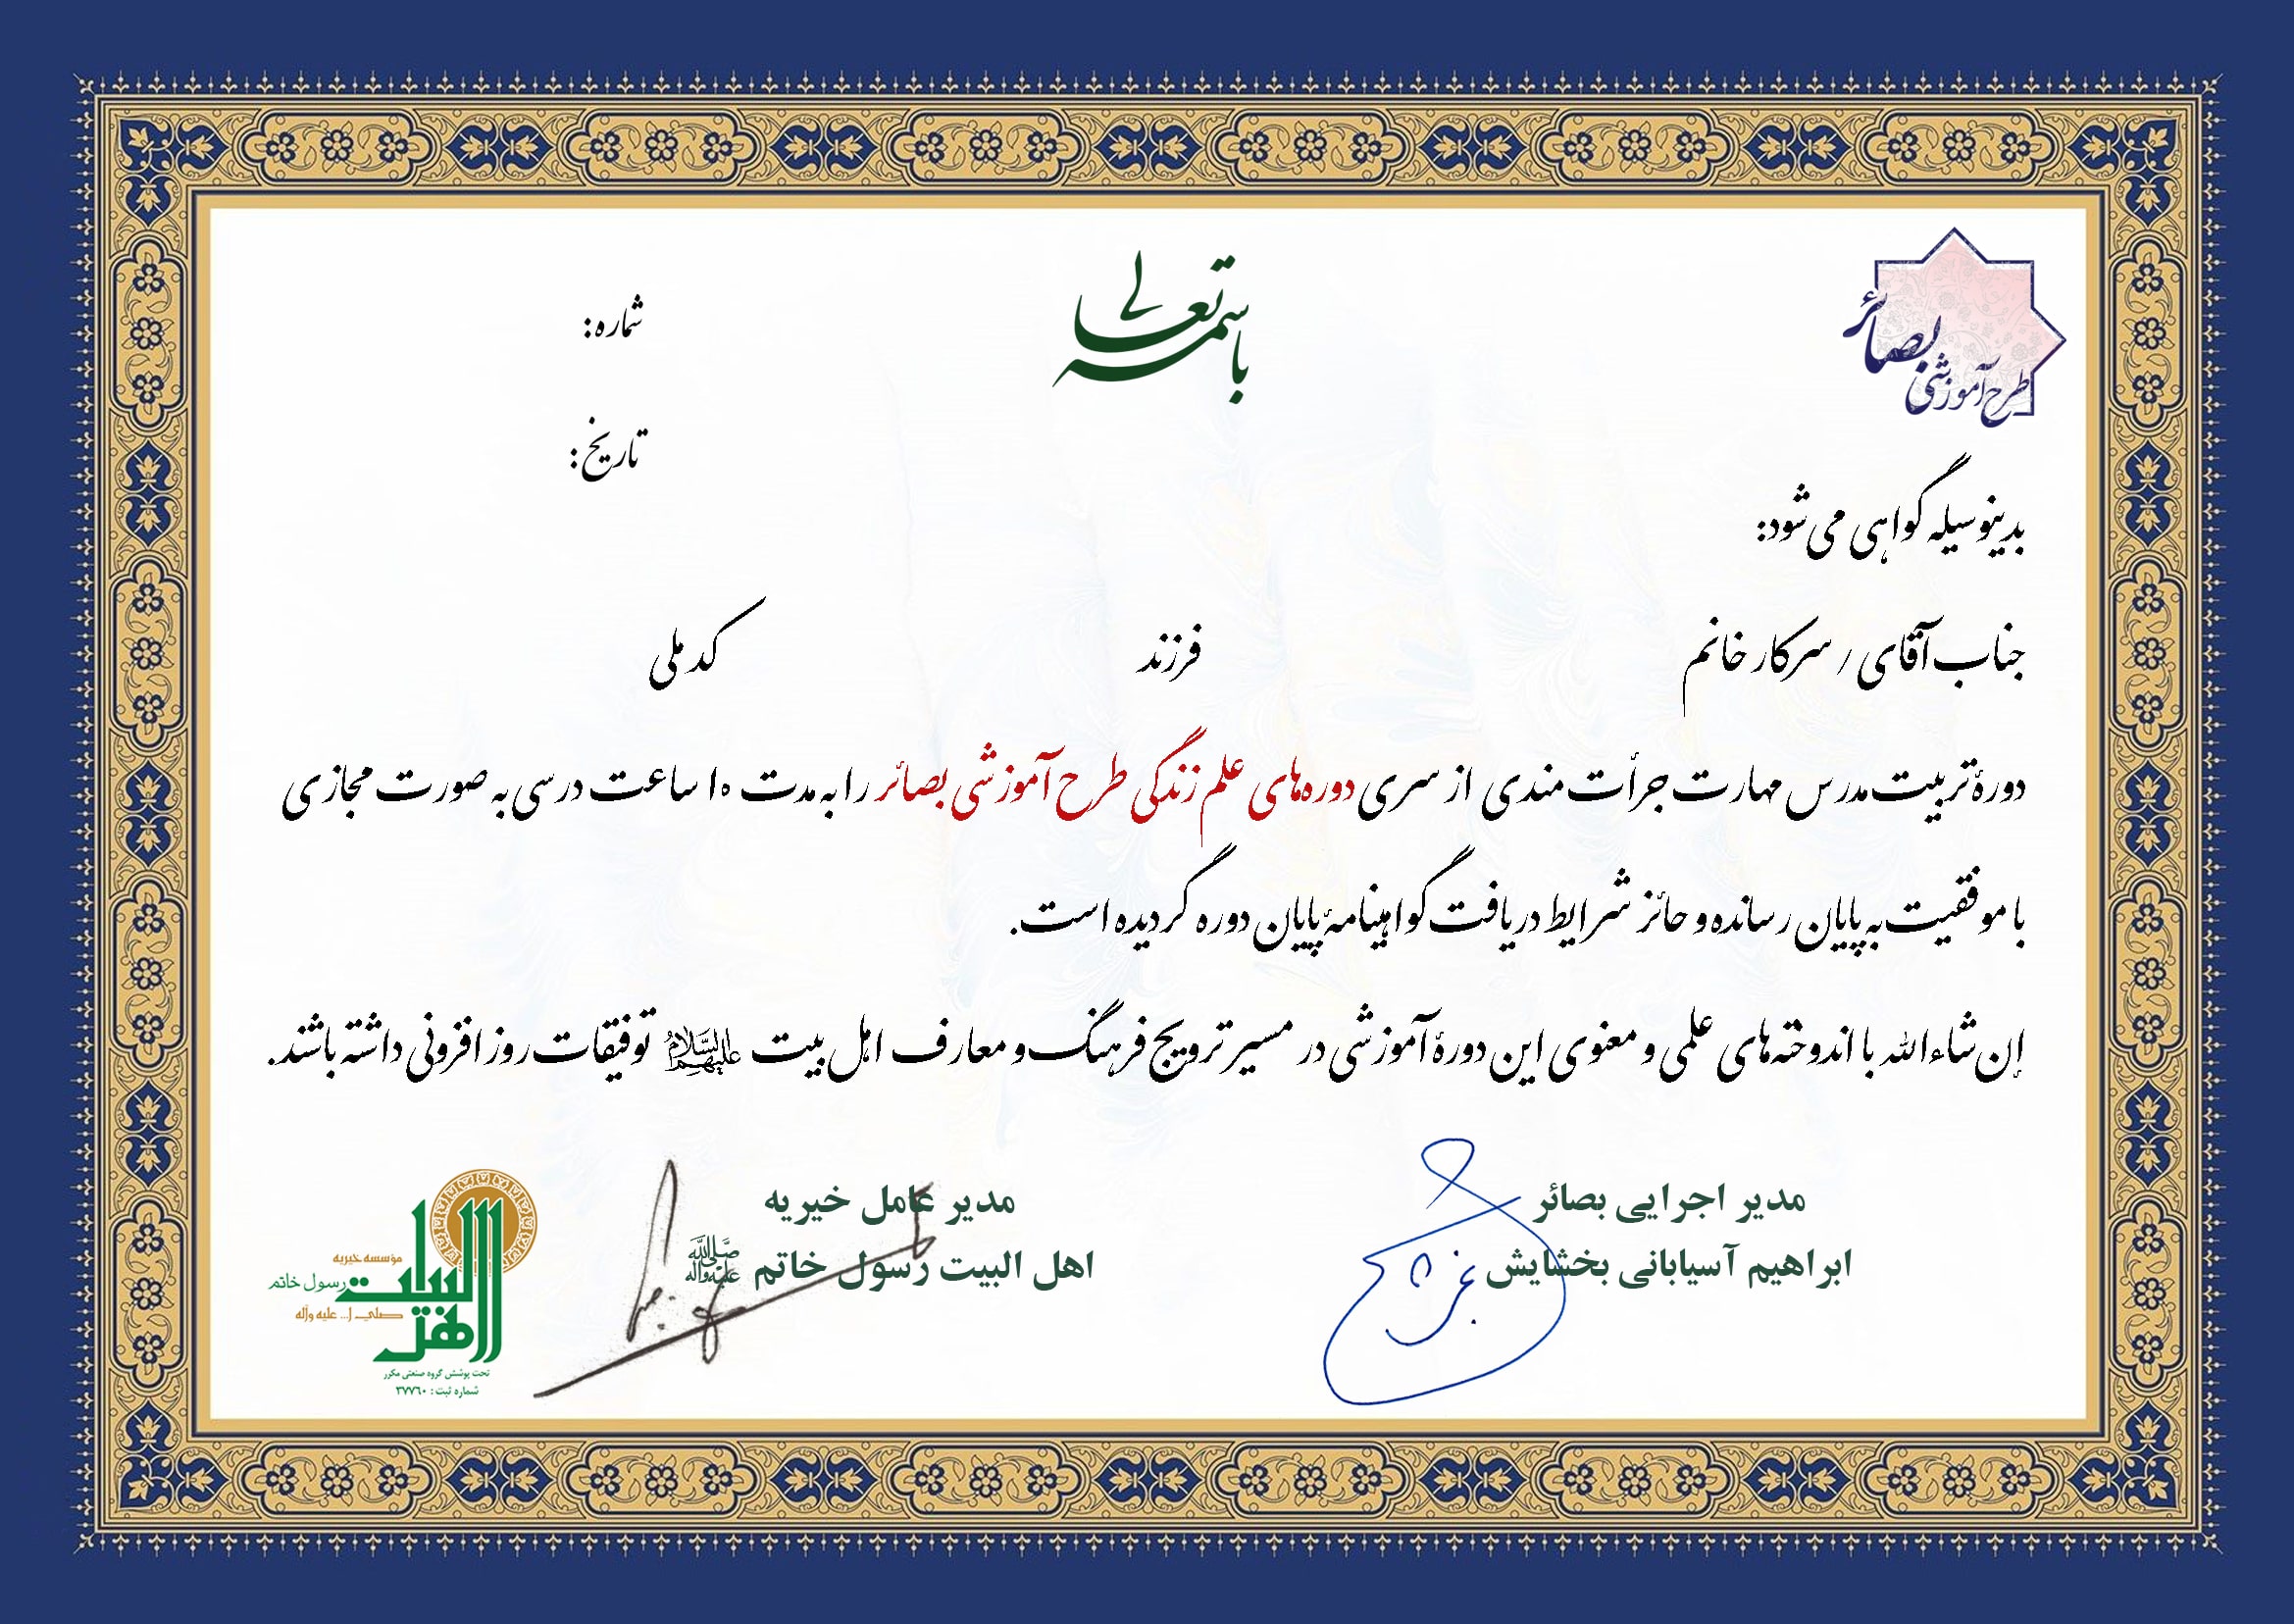 باسمه تعالی
طرح آموزشی بصائر
شماره:
تاریخ:
بدینوسیله گواهی می شود:
جناب آقای / سرکار خانم فرزند کد ملی
دورهٔ تربیت مدرس مهارت جرأت مندی از سری دوره‌های علم زندگی طرح آموزشی بصائر را به مدت ۱۰ ساعت درسی به صورت مجازی
با موفقیت به پایان رسانده و حائز شرایط دریافت گواهینامهٔ پایان دوره گردیده است.
إن شاءالله با اندوخته‌های علمی و معنوی این دورهٔ آموزشی در مسیر ترویج فرهنگ و معارف اهل بیت علیهم‌السلام توفیقات روزافزونی داشته باشند.
مدیر اجرایی بصائر
ابراهیم آسیابانی بخشایش
مدیر عامل خیریه
اهل البیت رسول خاتم صلی‌الله علیه وآله
مؤسسه خیریه
اهل البیت
رسول خاتم
صلی ا... علیه وآله
تحت پوشش گروه صنعتی مکرر
شماره ثبت : ۳۷۷۶۰